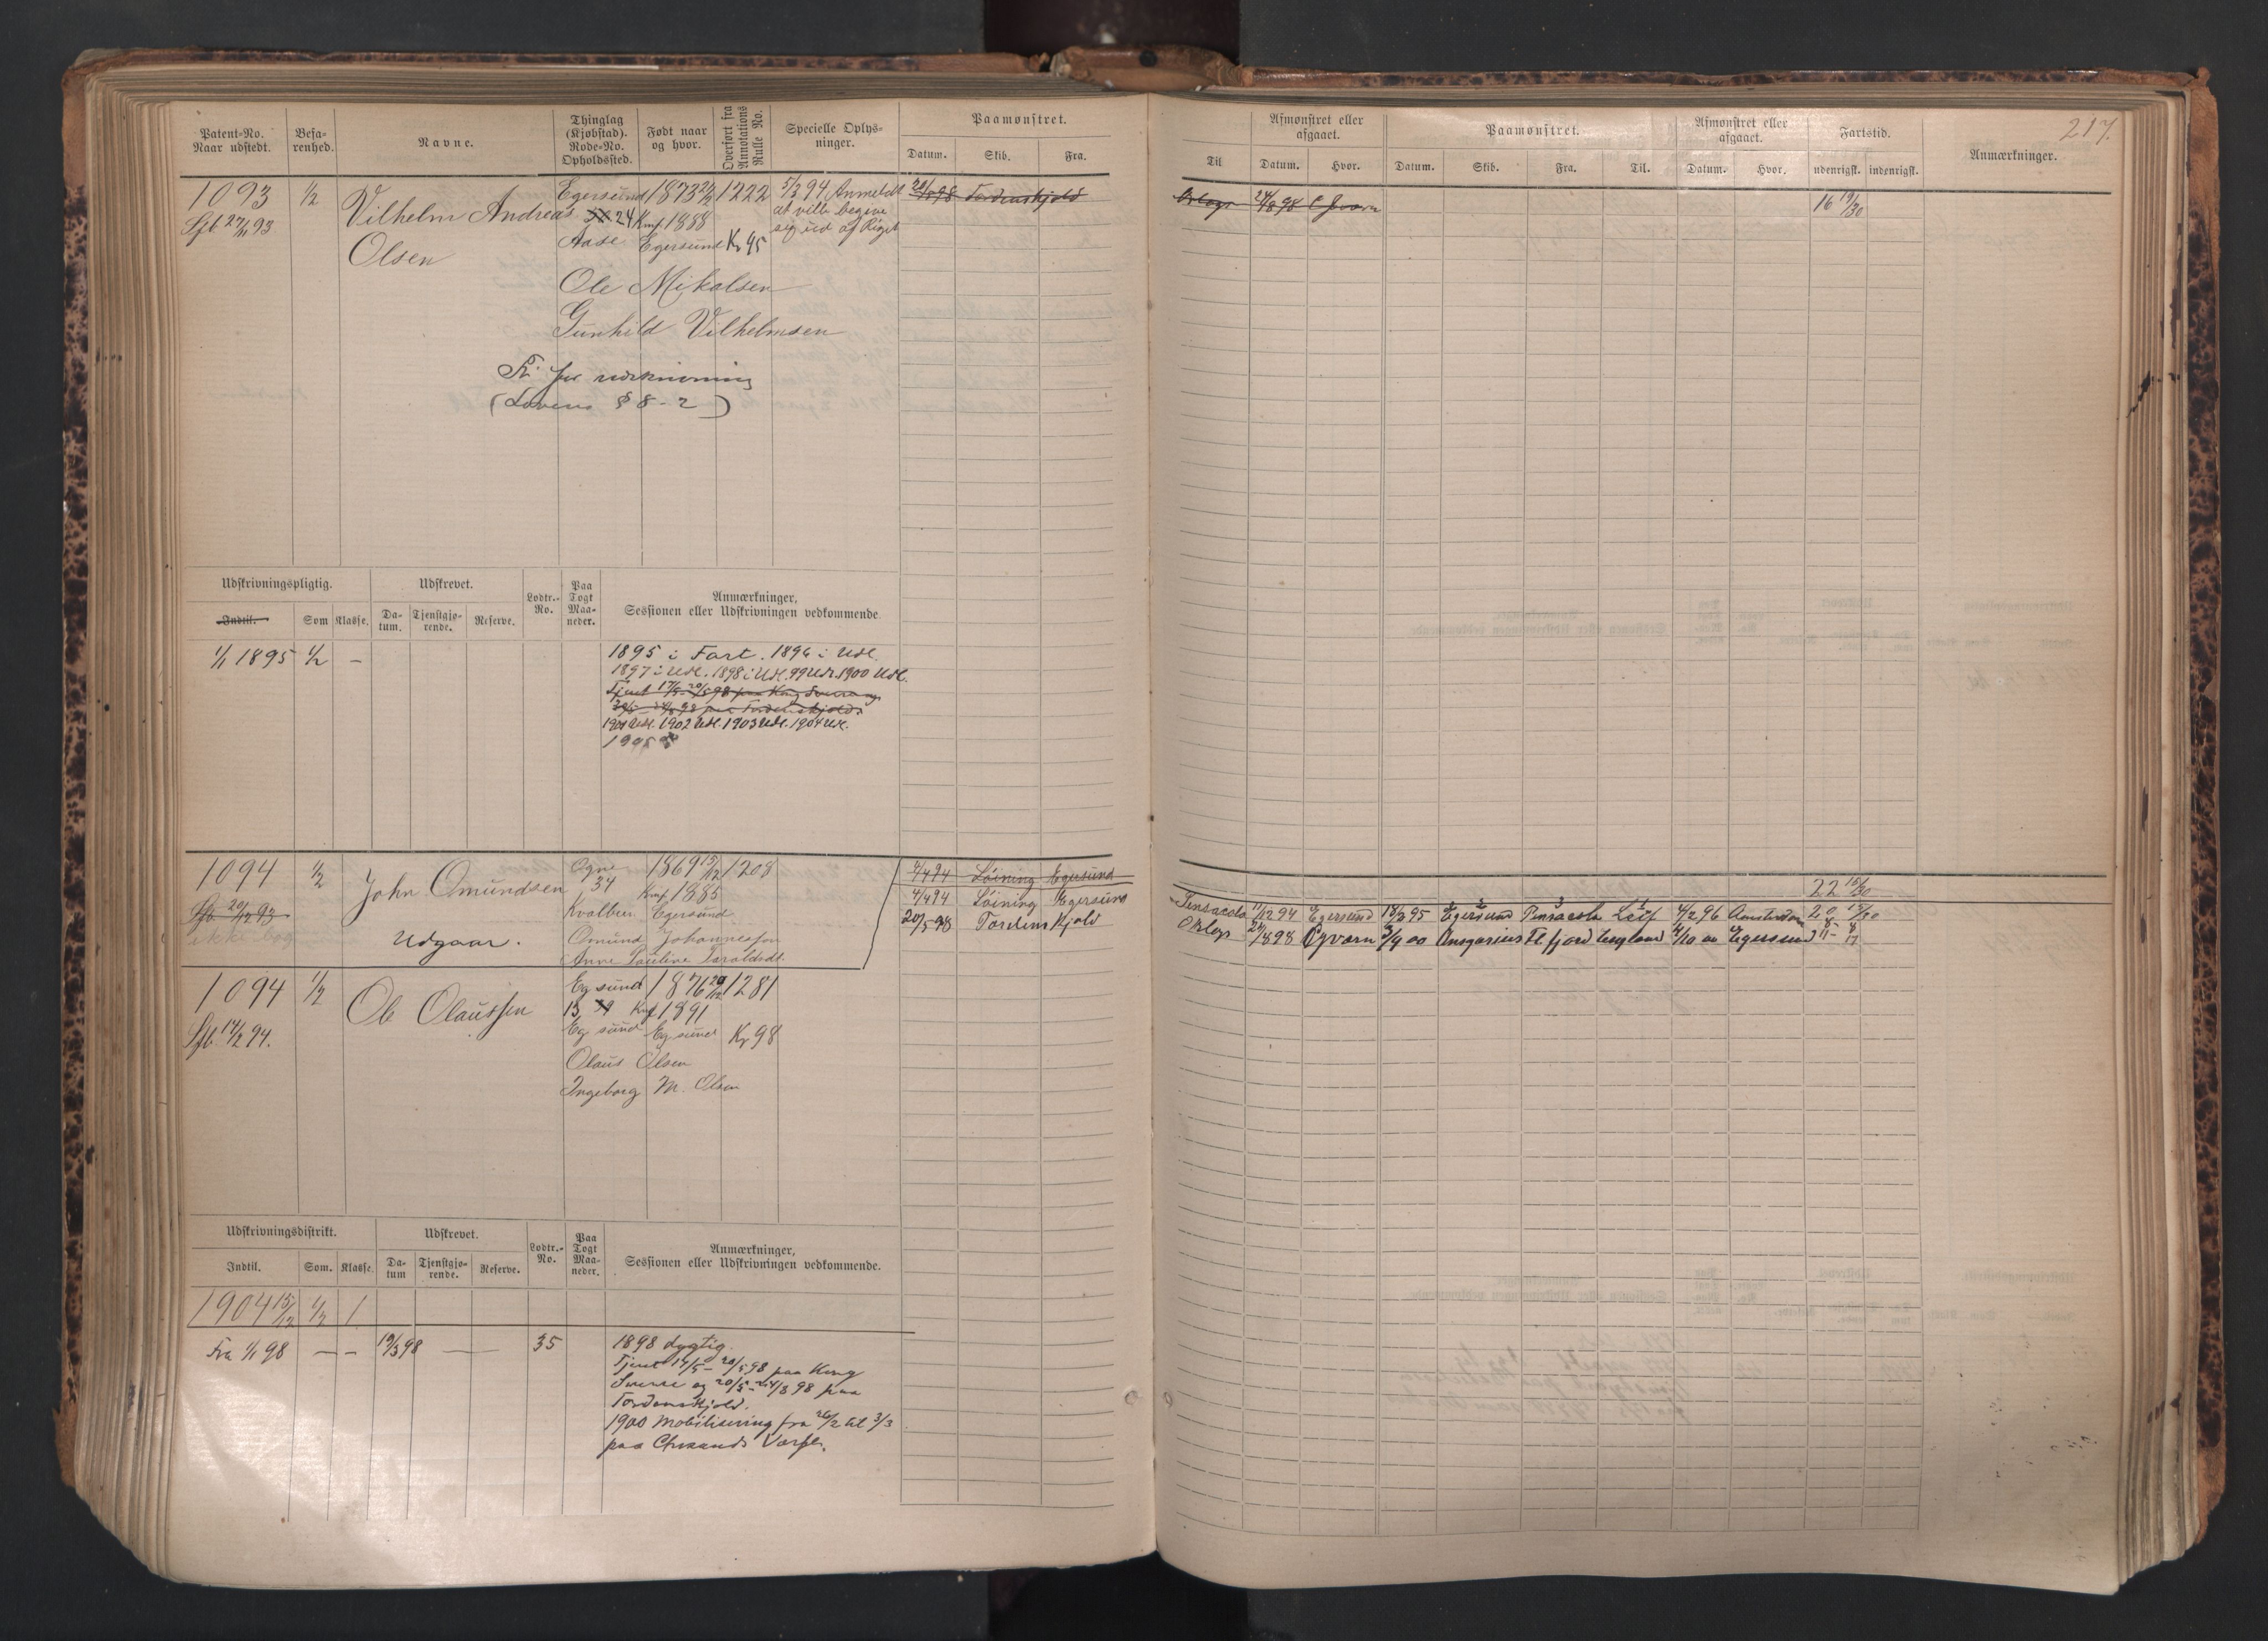 217.
Patent-No. Naar udstedt. Befa-renhed. Navne. Thinglag (Kjøbstad). Rode-No. Opholdssted. Født naar og hvor. Overført fra Annotations Rulle No. Specielle Oplys-ninger. Paamønstret.
Datum. Skib. Fra.
Afmønstret eller afgaaet. Paamønstret. Afmønstret eller afgaaet. Fartstid. Anmærkninger.
Til Datum. Hvor. Datum. Skib. Fra. Til. Datum. Hvor. udenrigsk. indenrigsk.
1093 1/2 Vilhelm Andreas Egersund 1873 1222 5/3 94 Anmeldt 20/5 98 Tordenskjold
Orlogs 24/8 98 16 19/30
Sfb 27/11 93 24 Knf. 1888 at ville begive
Olsen Aase Egersund Kr 95 sig ud af Riget
Ole Mikalsen
Gunhild Vilhelmsen
Fri for udskrivning
(Lovens § 8-2)
Udskrivningspligtig. Udskrevet. Lodtr.-No. Paa Togt Maa-neder. Anmærkninger, Sessionen eller Udskrivningen vedkommende.
Indtil. Som Klasse. Da-tum. Tjenstgjø-rende. Reserve.
1/1 1895 1/2 – 1895 i Fart. 1896 i Udl.
1897 i Udl. 1898 i Udl. 99 Udl. 1900 Udl.
Tjent 17/5-20/5 98 paa Kong Sverre og
20/5 - 24/8 98 paa Tordenskjold.
1901 Udl. 1902 Udl. 1903 Udl. 1904 Udl.
1905
1094 1/2 John Omundsen Ogne 1869 15/12 1208 4/4 94 Löining Egersund
22 15/30
34 Knf. 1885 4/4 94 Löining Egersund
Pensacola 11/12 94 Egersund 18/2 95 Egersund Pensacola Leif 4/2 96 Amsterdam 20 15/30
Sfb 20/12 93 Kvalbein Egersund 20/5-98 Tordenskjold
Orlogs 24/8 98 3/9 00 Ansgarius Fl.fjord England 4/10 00 Egersund
ikke bog Udgaar. Omund Johannessen
Anne Pauline Taraldsdt.
1094 1/2 Ole Olaussen Eg sund 1876 29/12 1281
13 Knf 1891
Sfb 14/2 94. Eg sund Eg sund Kr 98
Olaus Olsen
Ingeborg M. Olsen
Udskrivningsdistrikt. Udskrevet. Lodtr.-No. Paa Togt Maa-neder. Anmærkninger, Sessionen eller Udskrivningen vedkommende.
Indtil. Som. Klasse. Da-tum Tjenstgjø-rende. Reserve.
1904 15/12 1/2 1
Fra 1/1 98 – – 19/3 98 – – 35 1898 dygtig.
Tjent 17/5- 20/5 98 paa Kong
Sverre og 20/5-24/8 98 paa
Tordenskjold.
1900 Mobilisering fra 26/2 til 3/3
paa Chrsands Værft.